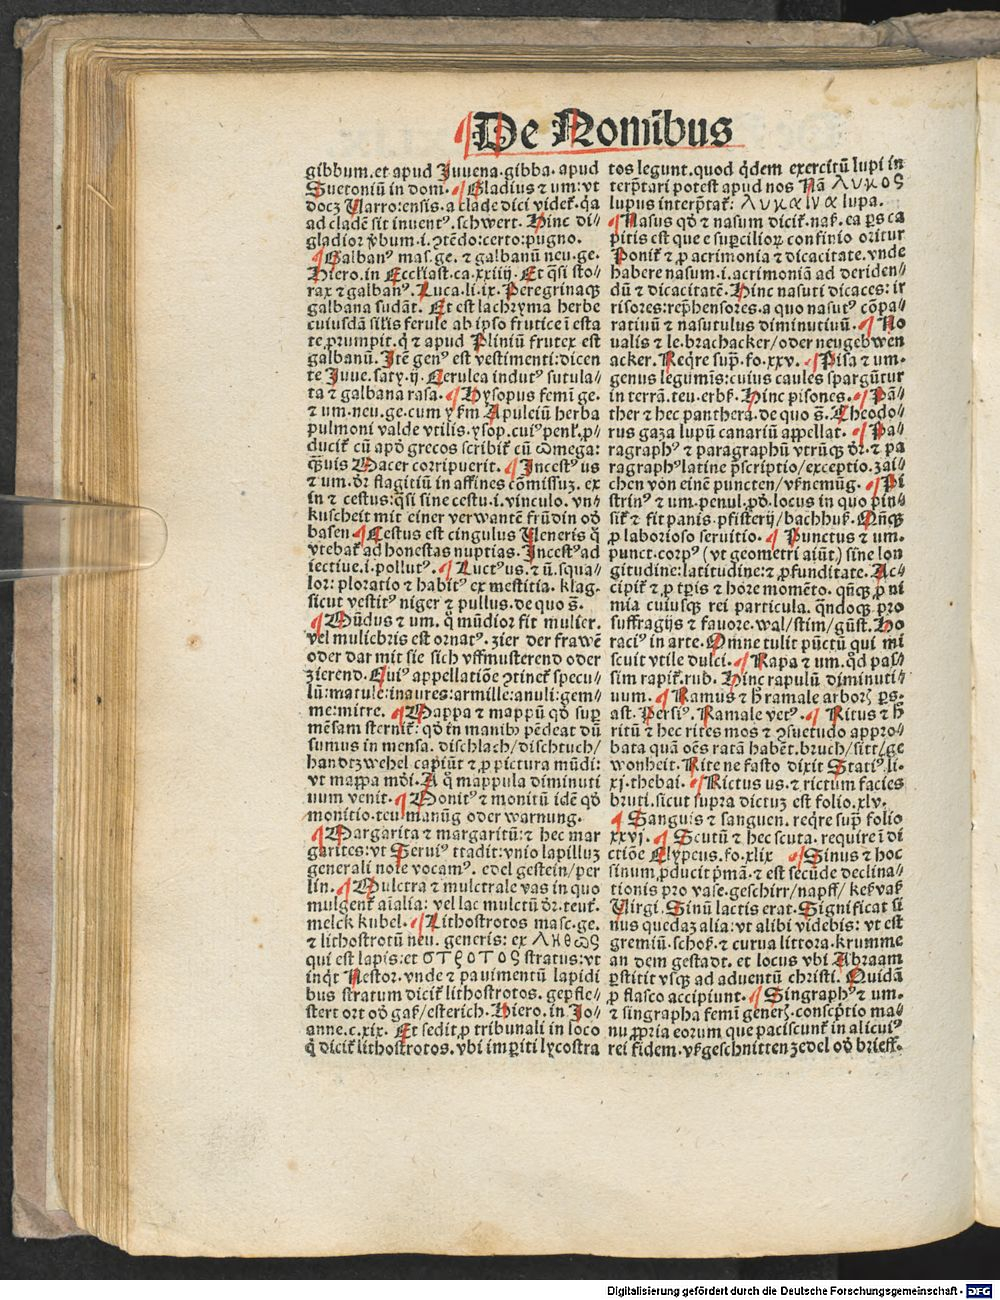 ¶ De Nomĩbus
gibbum. et apud Juuena. gibba. apud
Suetoniũ in dom. ¶ Gladius ⁊ um: vt
docꝫ Varro: ensis. a clade dici videt᷑. q̃a
ad cladē sit inuentꝰ. schwert. Hinc di-
gladior v̓bum. i. ꝯtēdo: certo: pugno.
¶ Galbanꝰ mas. ge. ⁊ galbanũ neu. ge.
Hiero. in Eccl̓iast. ca. xxiiij. Et q̃si sto/
rax ⁊ galbanꝰ. Luca. li. ix. Peregrinaqꝫ
galbana sudāt. Et est lachryma herbe
cuiusdā sil̓is ferule ab ipso frutice ĩ esta
te ꝓrumpit. q̃ ⁊ apud Pliniũ frutex est
galbanũ. Jtē genꝰ est vestimenti: dicen
te Juue. saty. ij. Cerulea indutꝰ sutula/
ta ⁊ galbana rasa. ¶ Hysopus femĩ ge.
⁊ um. neu. ge. cum y k̓m Apuleiũ herba
pulmoni valde vtilis. ysop. cuiꝰ penl̓t. ꝓ/
ducit᷑ cũ apd̓ grecos scribit᷑ cũ ωmega:
qᷓ̃uis Macer corripuerit. ¶ Jncestꝰ us
⁊ um. d̓r flagitiũ in affines cōmissuꝫ. ex
in ⁊ cestus: q̃si sine cestu. i. vinculo. vn/
kuscheit mit einer verwantē frũdin od̓
basen ¶ Cestus est cingulus Veneris q̃
vtebat᷑ ad honestas nuptias. Jncestꝰ ad
iectiue. i. pollutꝰ. ¶ Luctꝰ us. ⁊ ũ. squa/
lor: ploratio ⁊ habitꝰ ex mestitia. klag.
sicut vestitꝰ niger ⁊ pullus. de quo s̃.
¶ Mũdus ⁊ um. q̃ mũdior fit mulier.
vel muliebris est ornatꝰ. zier der frawē
oder dar mit sie sich vffmusterend oder
zierend. Cuiꝰ appellatiōe ꝯtinēt᷑ specu/
lũ: matule: inaures: armille: anuli: gem/
me: mitre. ¶ Mappa ⁊ mappũ qd̓ sup̱
mēsam sternit᷑: qd̓ in manibꝫ pēdeat dũ
sumus in mensa. dischlach/dischtuch/
handtzwehel capiũt ⁊ ꝓ pictura mũdi:
vt mappa mõi. A q̃ mappula diminuti
uum venit. ¶ Monitꝰ ⁊ monitũ idē qd̓
monitio. teu. manũg oder warnung.
¶ Margarita ⁊ margaritũ: ⁊ hec mar
garites: vt Seruiꝰ tradit: vnio lapilluꝫ
generali nole vocamꝰ. edel gestein/per
lin. ¶ Mulctra ⁊ mulctrale vas in quo
mulgent᷑ aĩalia: vel lac mulctũ d̓r. teut᷑.
melck kubel. ¶ Lithostrotos masc. ge.
⁊ lithostrotũ neu. generis: ex Ληθως
qui est lapis: et στροτος stratus: vt
inq̃t Nestor. vnde ⁊ pauimentũ lapidi
bus stratum dicit᷑ lithostrotos. gepfle/
stert ort od̓ gaß/esterich. Hiero. in Jo/
anne. c. xix. Et sedit ꝓ tribunali in loco
q̃ dicit᷑ lithostrotos. vbi imꝑiti lycostra
tos legunt. quod q̃dem exercitũ lupi in
terp̃tari potest apud nos Nã λυκος
lupus interp̃tat᷑: λυκαινα lupa.
¶ Nasus qd̓ ⁊ nasum dicit᷑. nas̓. ea ꝑs ca
pitis est que e supcilioꝝ confinio oritur
Ponit᷑ ⁊ ꝓ acrimonia ⁊ dicacitate. vnde
habere nasum. i. acrimoniā ad deriden/
dũ ⁊ dicacitatē. Hinc nasuti dicaces: ir
risores: rep̃hensores. a quo nasutꝰ cōpa/
ratiuũ ⁊ nasutulus diminutiuũ. ¶ No
ualis ⁊ le. brachacker/oder neugebwen
acker. Req̃re sup̃. fo. xxv. ¶ Pisa ⁊ um.
genus legumĩs: cuius caules spargũtur
in terrā. teu. erbß. Hinc pisones. ¶ Pā/
ther ⁊ hec panthera. de quo s̃. Theodo/
rus gaza lupũ canariũ appellat. ¶ Pa/
ragraphꝰ ⁊ paragraphũ vtrũqꝫ d̓r. ⁊ pa
ragraphꝰ latine p̃scriptio/exceptio. zai/
chen von einē puncten/vßnemũg. ¶ Pi
strinꝰ ⁊ um. penul. ꝓd̓. locus in quo pin/
sit᷑ ⁊ fit panis. pfisterij/bachhuß. Qñqꝫ
ꝓ laborioso seruitio. ¶ Punctus ⁊ um.
punct. corpꝰ (vt geometri aiũt) sine lon
gitudine: latitudine: ⁊ ꝓfunditate. Ac/
cipit᷑ ⁊ ꝓ tꝑis ⁊ hore momēto. qñqꝫ ꝓ ni
mia cuiusqꝫ rei particula. qñdoqꝫ pro
suffragijs ⁊ fauore. wal/stim/gũst. Ho
raciꝰ in arte. Omne tulit pũctũ qui mi
scuit vtile dulci. ¶ Rapa ⁊ um. qd̓ pas/
sim rapit᷑. rub. Hinc rapulũ diminuti/
uum. ¶ Ramus ⁊ h̓ ramale arboꝝ ꝑs.
ast. Persiꝰ. Ramale vetꝰ. ¶ Ritus ⁊ h̓
ritũ ⁊ hec rites mos ⁊ ꝯsuetudo appro/
bata quā oēs ratā habēt. bruch/sitt/ge
wonheit. Rite ne fasto dixit Statiꝰ li.
xj. thebai. ¶ Rictus us. ⁊ rictum facies
bruti. sicut supra dictuꝫ est folio. xlv.
¶ Sanguis ⁊ sanguen. req̃re sup̃ folio
xxvj. ¶ Scutũ ⁊ hec scuta. require ĩ di
ctiōe Clypeus. fo. xlix ¶ Sinus ⁊ hoc
sinum ꝓducit p̃mā. ⁊ est secũde declina/
tionis pro vase. geschirr/napff/keßvaß
Virgi. Sinũ lactis erat. Significat si
nus quedaꝫ alia: vt alibi videbis: vt est
gremiũ. schoß. ⁊ curua littora. krumme
an dem gestadt. et locus vbi Abraam
ꝑstitit vsqꝫ ad aduentũ christi. Quidā
ꝓ flasco accipiunt. ¶ Singraphꝰ ⁊ um.
⁊ singrapha femĩ geneꝝ. conscp̃tio ma/
nu ꝓpria eorum que paciscunt᷑ in alicuiꝰ
rei fidem. vßgeschnitten zedel od̓ brieff.
Digitalisierung gefördert durch die Deutsche Forschungsgemeinschaft - DFG